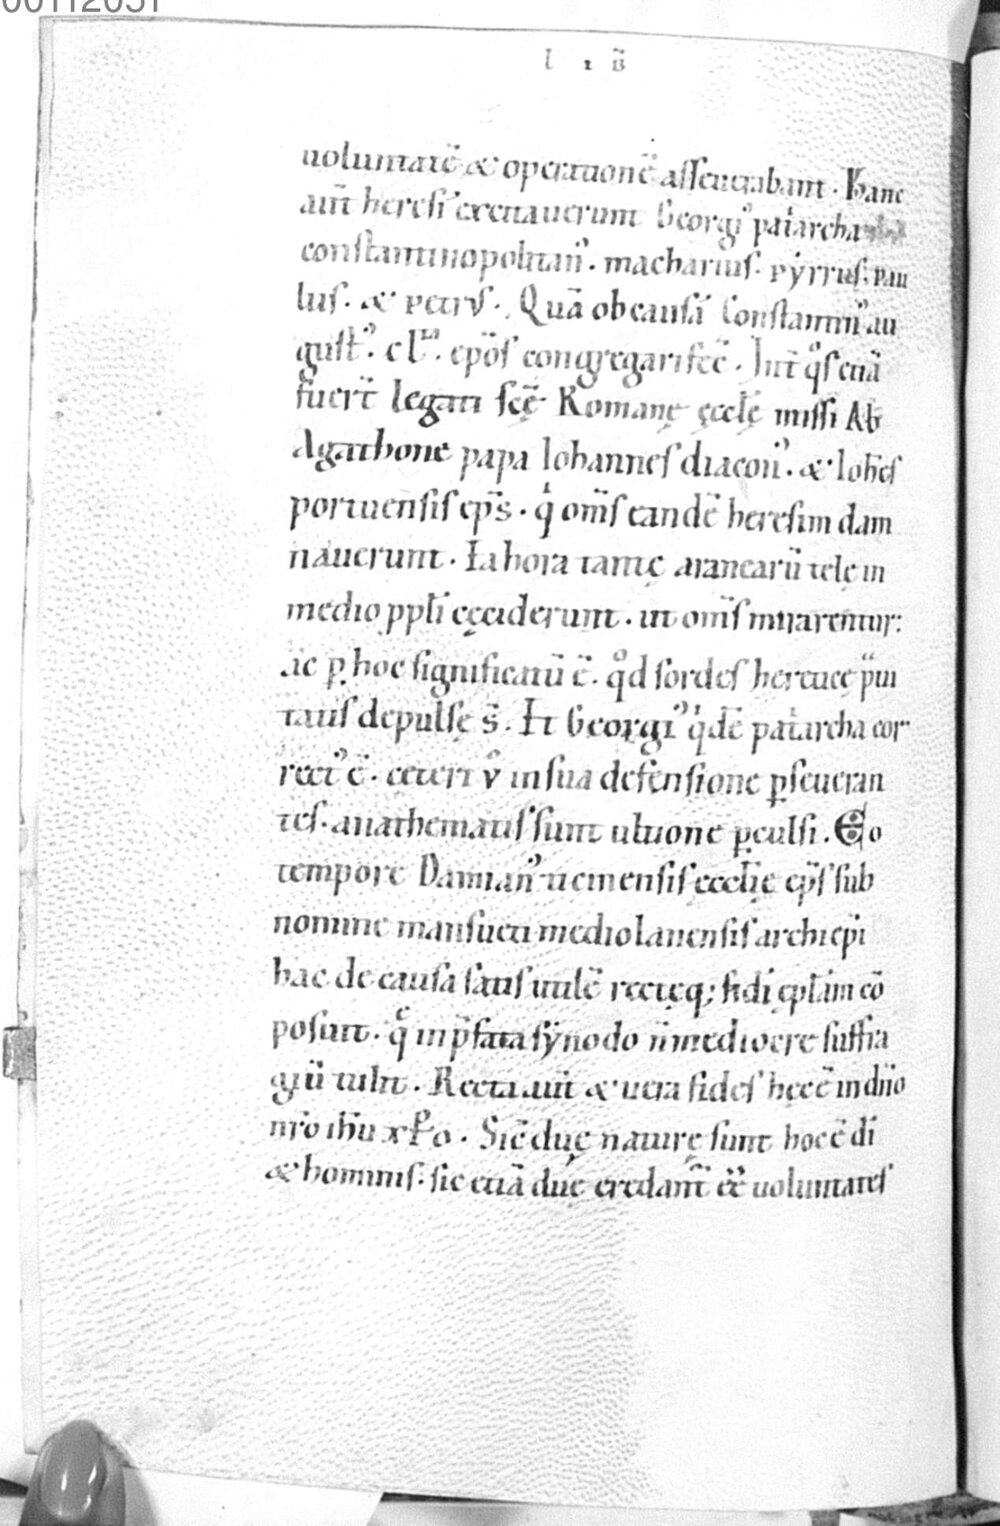 00112051
l ı b̃
uoluntatẽ & operationẽ asseuerabant. Hanc
aut̃ heresi᷑ excitauerunt Georgi᷒ pat͛archa
constantinopolitan᷒. macharius. pẏrrus. pau
lus. & petrus. Quã ob causã Constantin᷒ au
gust᷒. cl. ep̃os congregari fecit̃. Int̃ q̊s etiã
fuert̃ legati sc̃ę Romanę ęccl̃ę missi Ab
Agathone papa Iohannes diacon᷒. & Ioh̃es
portuensis ep̃s. q͛ om̃s eandẽ heresim dam
nauerunt. Ea hora tantę aranearũ telę in
medio ppl̃i cęciderunt. ut om̃s mirarentur:
ac ꝑ hoc significatũ ẽ. qd̊ sordes hereticę p̃ui
tatis depulsę s̃. Et Georgi᷒ q͛dẽ pat͛archa cor
rect᷒ ẽ. cęteri v̊ in sua defensione ꝑseueran
tes. anathematis sunt ultione ꝑculsi. Eo
tempore Damian᷒ ticinensis ęccl̃ię ep̃s sub
nomine mansueti mediolanensis archiep̃i
hac de causa satis utilẽ rectęq; fidi ępl̃am cõ
posuit. q̊ in p̃fata sẏnodo ñ mediocre suffra
giũ tulit. Recta aut̃ & uera fides hęc ẽ in dño
nr̃o ih̃u xp̃o. Sic̃ duę naturę sunt hoc ẽ di
& hominis. sic etiã duę credant̃ eẽ uoluntates